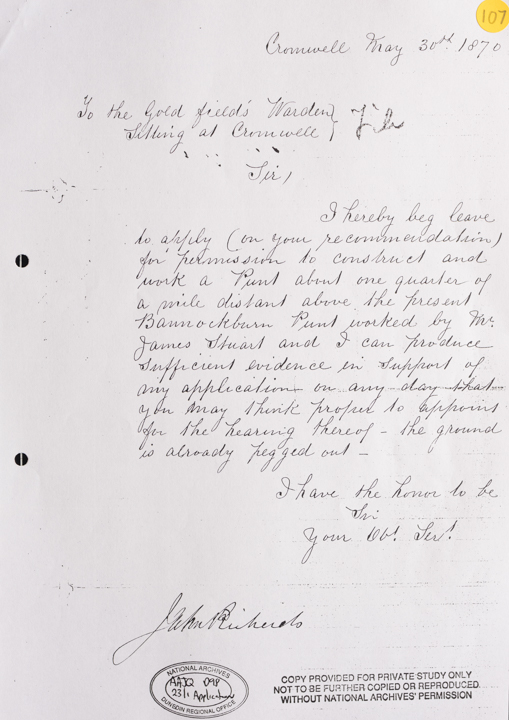 107
Cromwell May 30th 1870
To the Gold field's Warden
Sitting at Cromwell
File
Sir,
I hereby beg leave
to apply (on your recommendation)
for permission to construct and
work a Punt about one quarter of
a mile distant above the present
Bannockburn Punt worked by Mr.
James Stuart and I can produce
sufficient evidence in support of
my application on any day that
you may think proper to appoint
for the hearing thereof - the ground
is already pegged out -
I have the honor to be
Sir
Your Obt. Servt.
John Richards
NATIONAL ARCHIVES
AAJQ D98
23/1 Application
DUNEDIN REGIONAL OFFICE
COPY PROVIDED FOR PRIVATE STUDY ONLY
NOT TO BE FURTHER COPIED OR REPRODUCED
WITHOUT NATIONAL ARCHIVES' PERMISSION